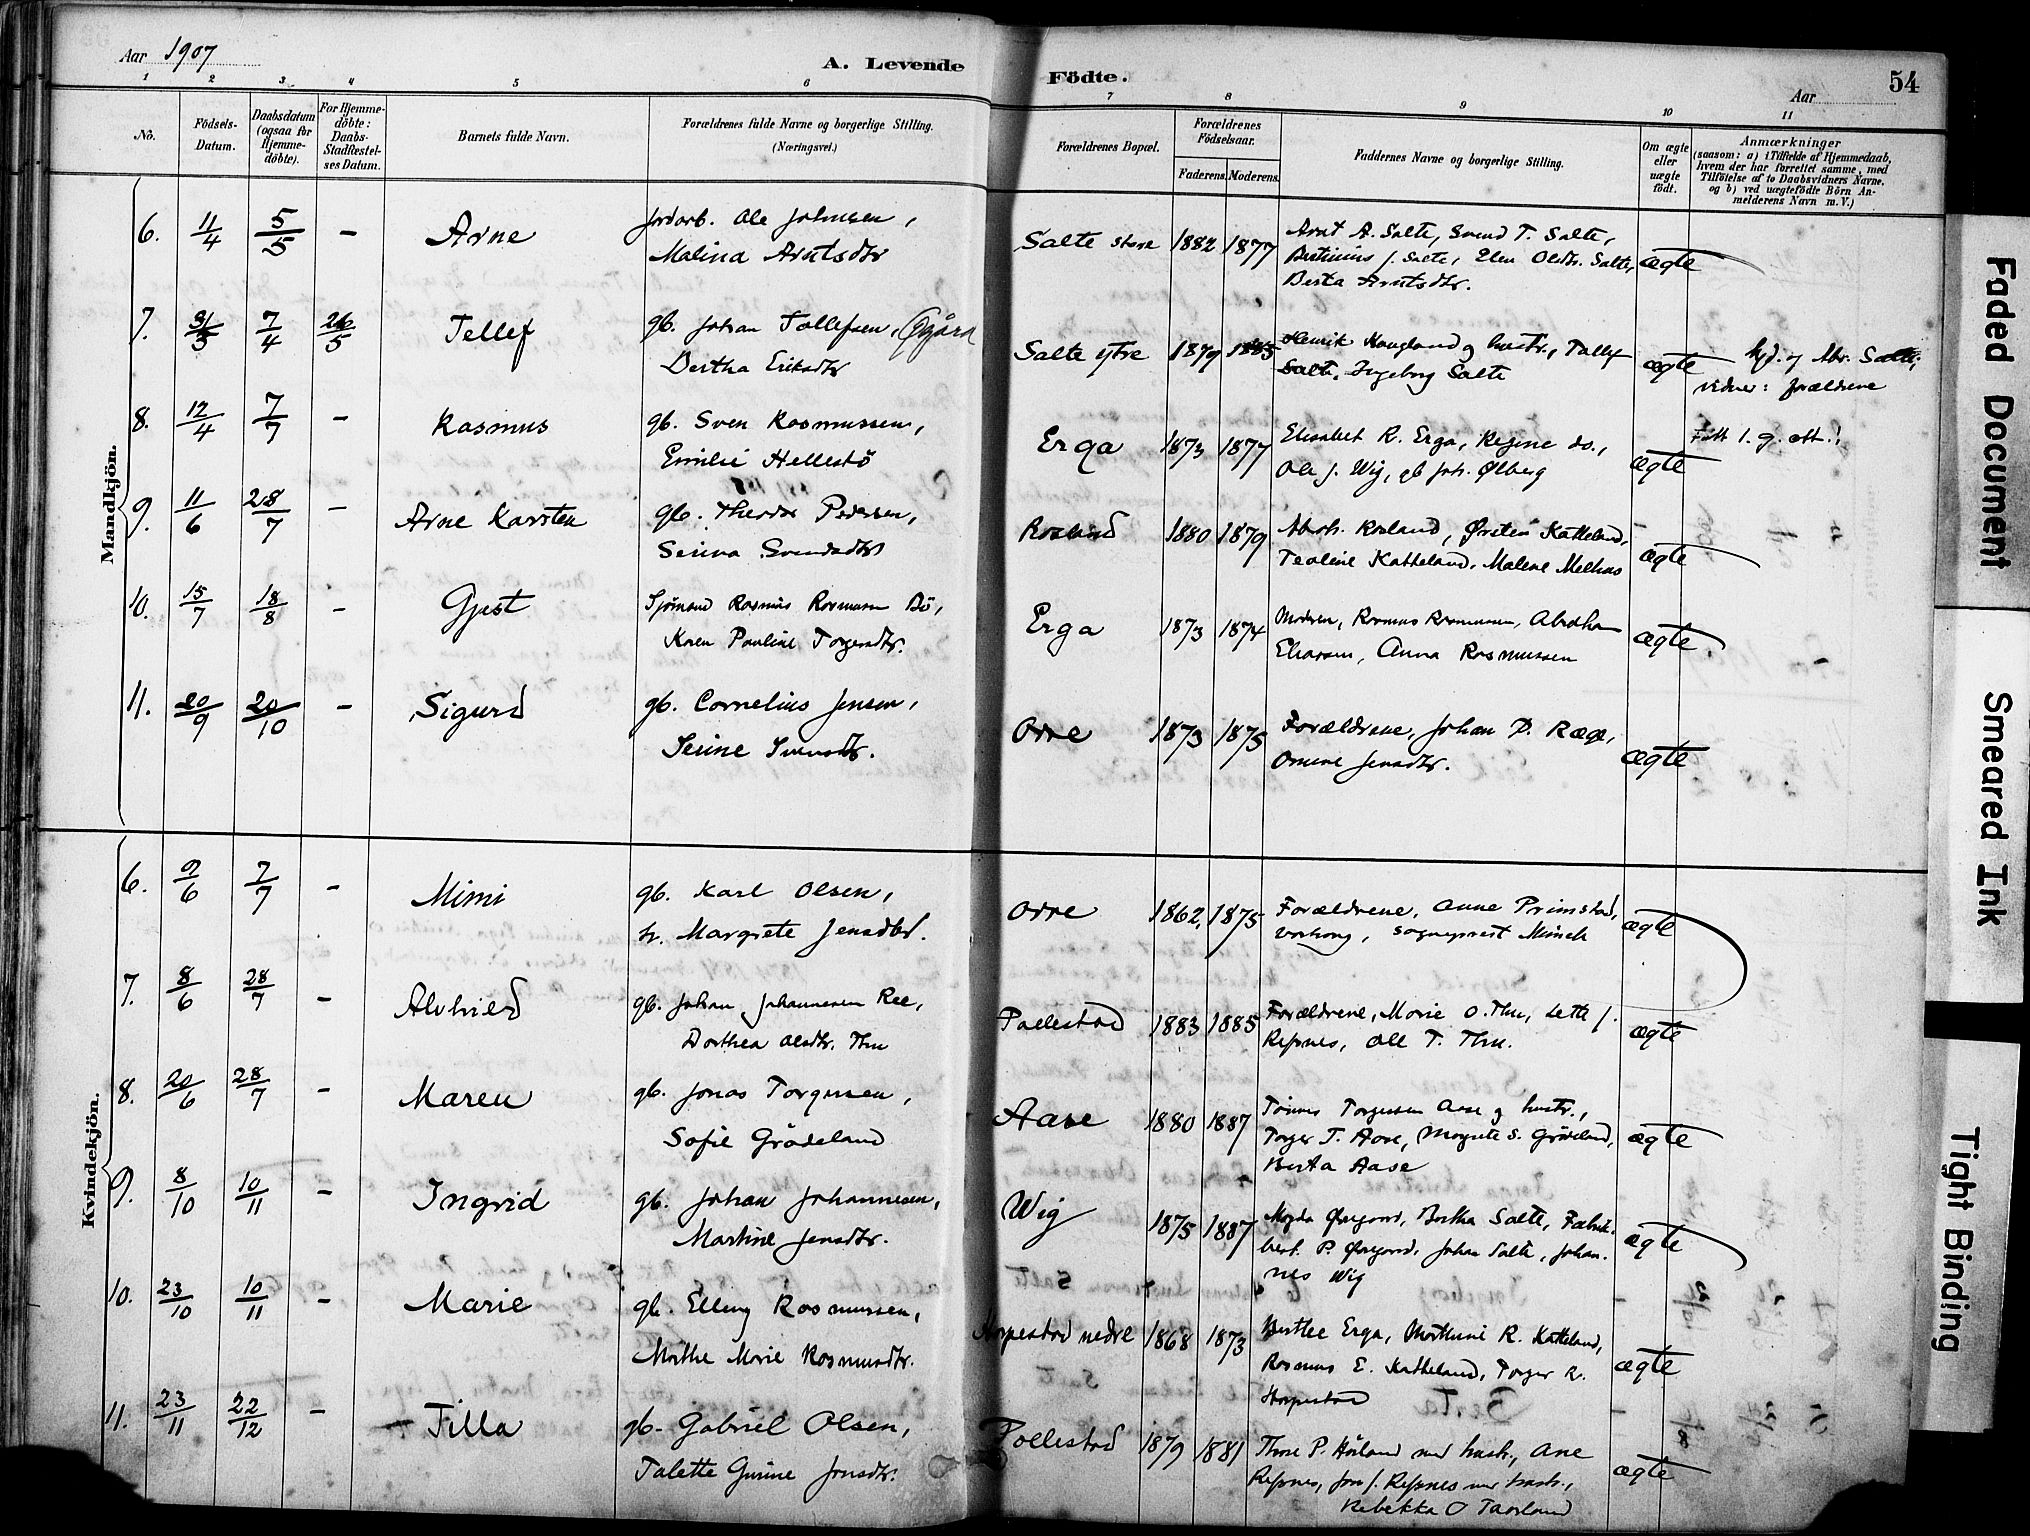 Aar 1907
A. Levende Födte.
54
Aar
1 2 3 4 5 6 7 8 9 10 11
No.
Födsels-Datum.
Daabsdatum (ogsaa for Hjemme-döbte).
For Hjemme-döbte: Daabs-Stadfestel-ses Datum.
Barnets fulde Navn.
Forældrenes fulde Navne og borgerlige Stilling. (Næringsvei.)
Forældrenes Bopæl.
Forældrenes Födselsaar.
Faderens. Moderens.
Faddernes Navne og borgerlige Stilling.
Om ægte eller uægte födt.
Anmærkninger
(saasom: a) i Tilfælde af Hjemmedaab, hvem der har forrettet samme, med Tilföielse af to Daabsvidners Navne, og b) ved uægtefödte Börn An-melderens Navn m. V.)
Mandkjön.
6. 11/4 5/5 – Arne Jordarb. Ole Johnsen, Salte store 1882 1877 Arnt A. Salte, Svend T. Salte, ægte
Malina Arntsdtr Bertinius J. Salte, Elen Oldtr. Salte,
Berta Arntsdtr.
7. 31/3 7/4 26/5 Tellef gb. Johan Tollefsen, Salte ytre 1879 1885 Henrik Haugland og hustr., Tollef ægte
Bertha Eriksdtr Salte, Ingeborg Salte
Salte, vidner: forældrene
8. 12/4 7/7 – Rasmus gb. Sven Rasmussen, Erga 1873 1877 Elisabet R. Erga, Regine do., ægte
Emilie Hellestö Ole J. Wig, gb Joh. Ølberg
9. 11/6 28/7 – Arne Karsten gb. Theodor Pedersen, Rosland 1880 1879 Abrah. Rosland, Østen Katteland, ægte
Serina Svendsdtr Teoline Katteland, Malene Melhus
10. 15/7 18/8 – Gjest Sjömand Rasmus Rasmussen Bö, Erga 1873 1874 Modren, Rasmus Rasmussen, Abraham ægte
Karen Pauline Torgersdtr. Eliassen, Anna Rasmussen
11. 20/9 20/10 – Sigurd gb. Cornelius Jensen, Orre 1873 1875 Forældrene, Johan P. Ræge, ægte
Serine Svensdtr. Omine Jensdtr.
Kvindekjön.
6. 9/6 7/7 – Mimi gb. Karl Olsen, Orre 1862, 1875 Forældrene, Anne Primstad, ægte
h. Margrete Jensdtr. Varhaug, sogneprest Münch
7. 8/6 28/7 – Alvhild gb. Johan Johannesen Ree, Pollestad 1883 1885 Forældrene, Marie O. Thu, Lette J. ægte
Dorthea Olsdtr. Thu Refsnes, Ole T. Thu.
8. 20/6 28/7 – Maren gb. Jonas Torgersen, Aase 1880 1887 Tönnes Torgersen Aase og hustr., ægte
Sofie Grödeland Torger T. Aase, Magrete S. Grödeland,
Berta Aase
9. 8/10 10/11 – Ingrid gb. Johan Johannesen, Wig 1875 1887 Magda Øvregaard, Bertha Salte, Fabrik- ægte
Martine Jensdtr. best. P. Øvregaard, Johan Salte, Johan-
nes Wig
10. 23/10 10/11 – Marie gb. Elling Rasmussen, Horpestad nedre 1868 1873 Berthe Erga, Marthine R. Katteland, ægte
Marthe Marie Rasmusdtr. Rasmus E. Katteland, Torger R.
Horpestad
11. 23/11 22/12 – Tilla gb. Gabriel Olsen, Pollestad 1879 1881 Thore P. Höiland med hustr., Ane ægte
Talette Gurine Jonsdtr. Refsnes, Jon J. Refsnes med hustr.,
Rebekka O Taarland
Faded Document
Smeared Ink
Tight Binding